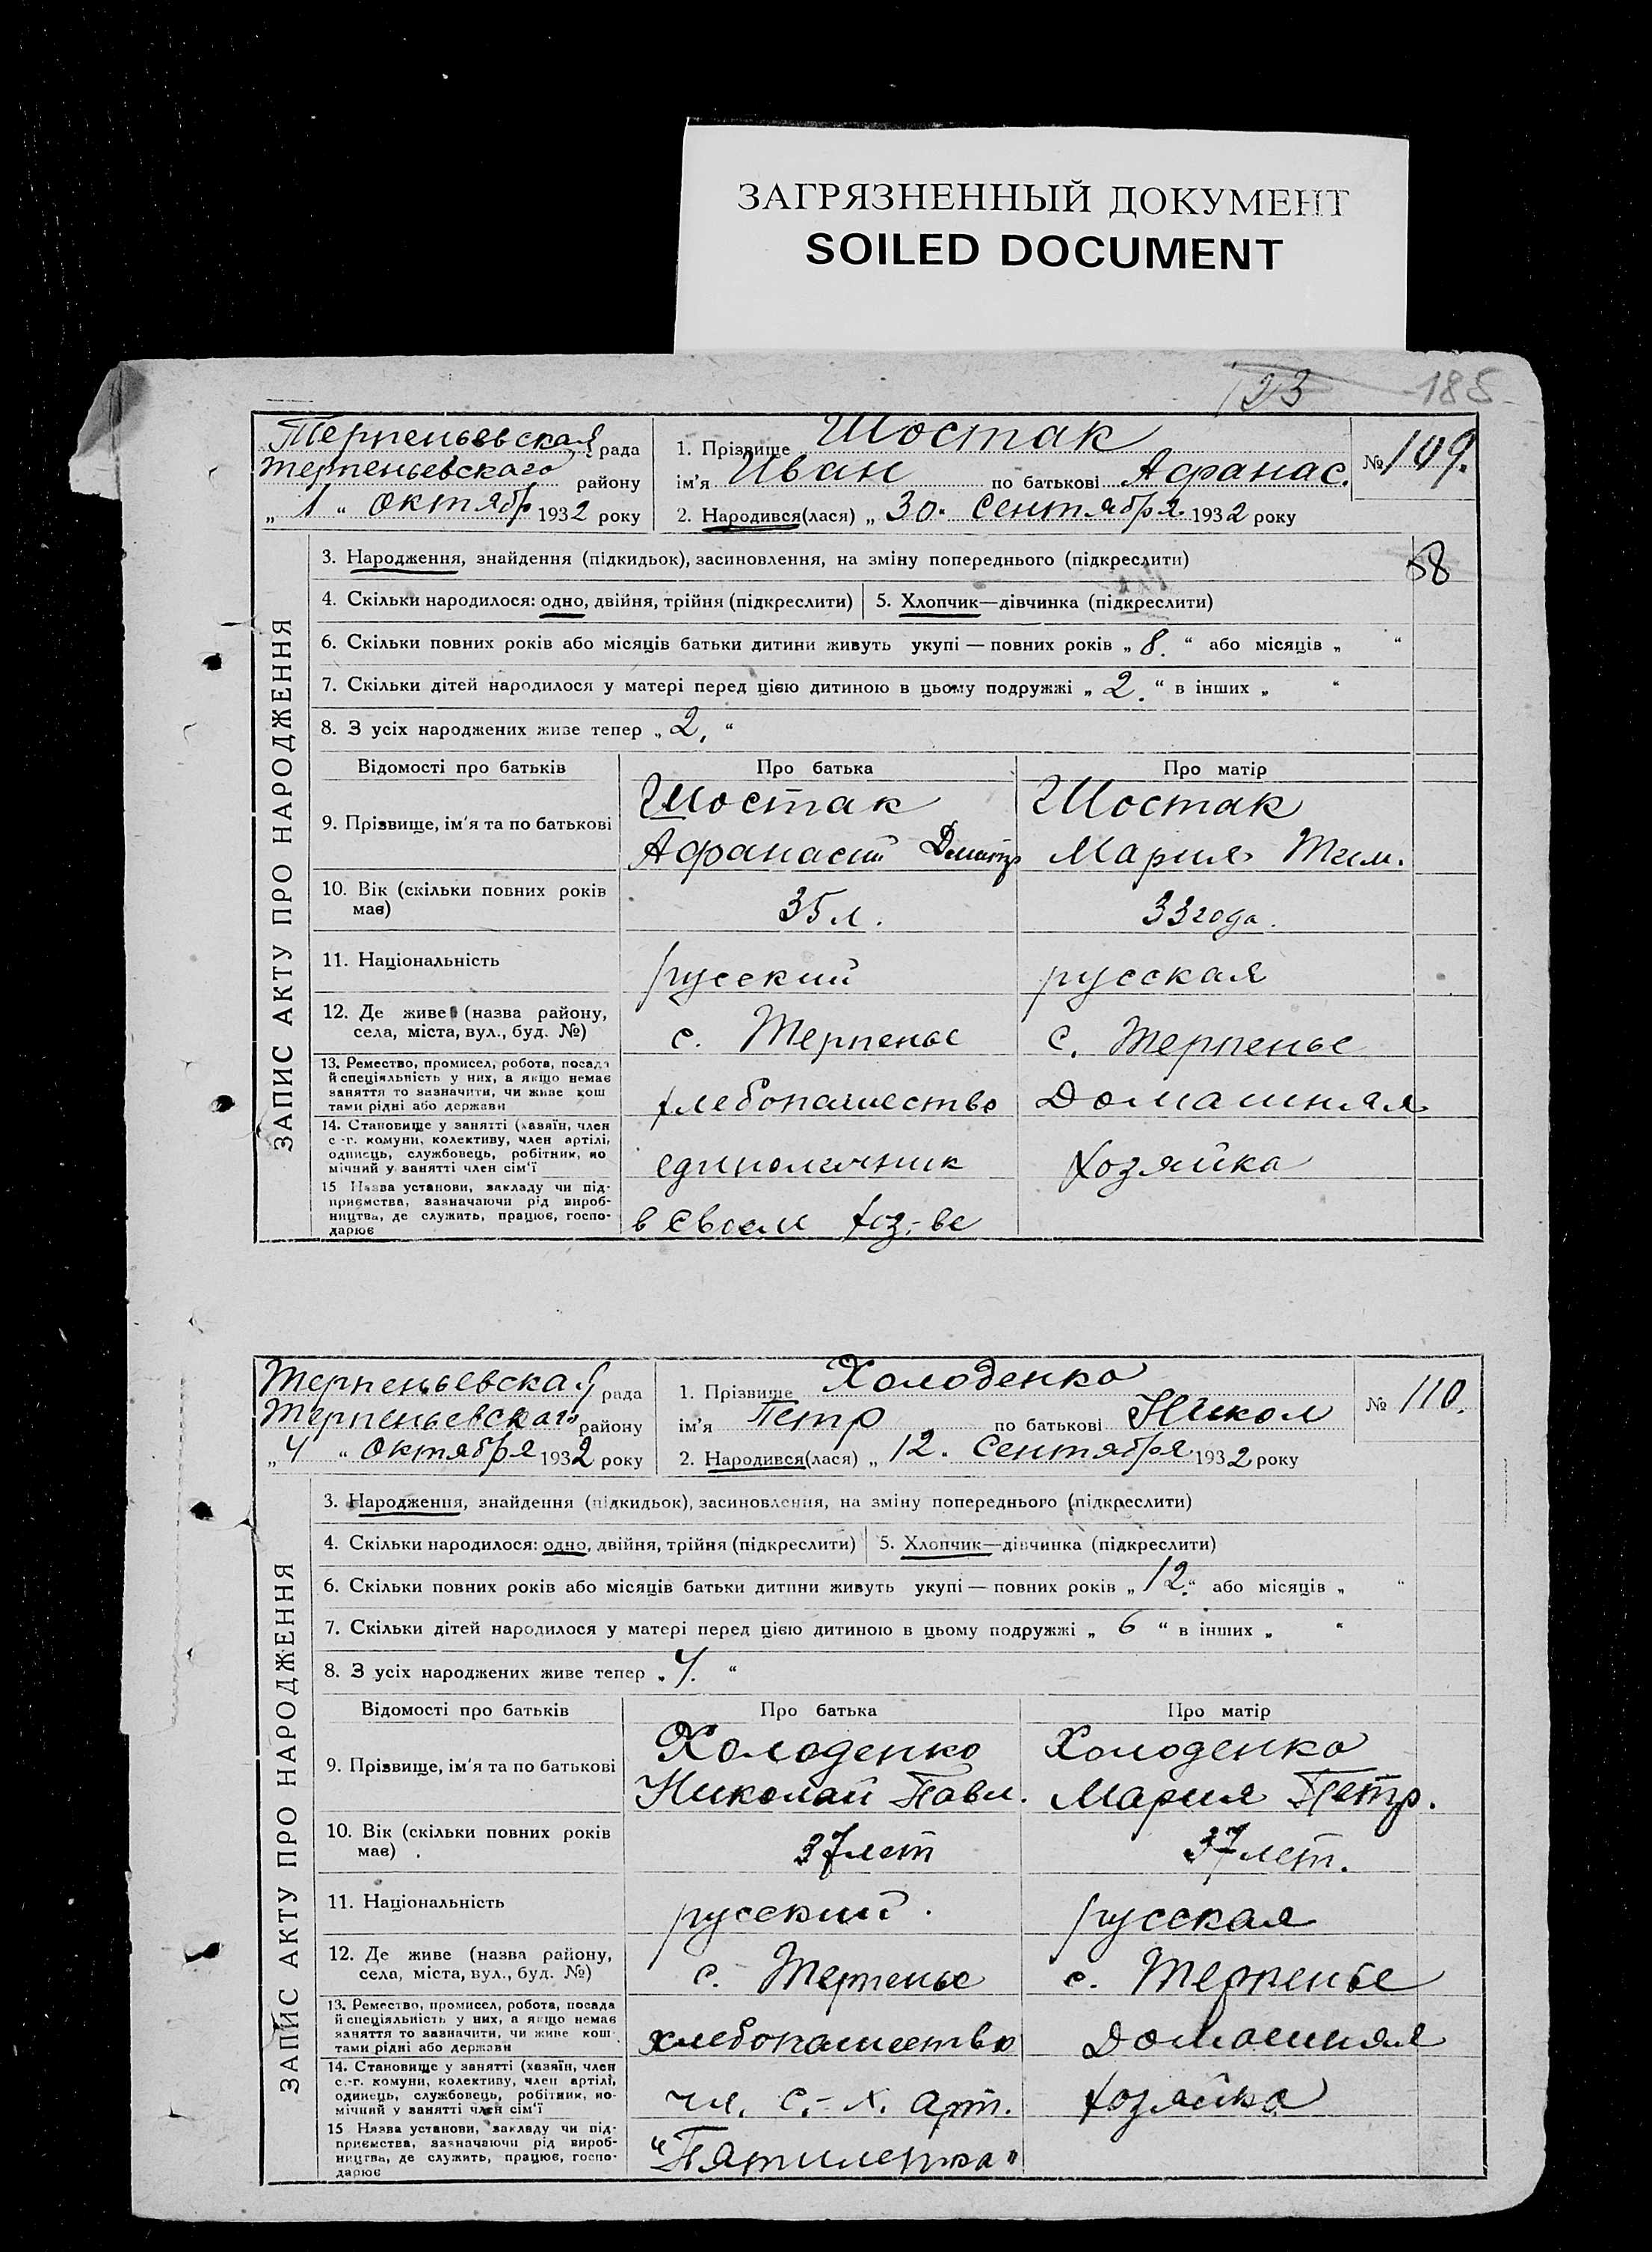 ЗАГРЯЗНЕННЫЙ ДОКУМЕНТ
SOILED DOCUMENT
123 185
Терпеньевская рада
Терпеньевскаго району
„ 1 “ октябр 1932 року
1. Прізвище Шостак
ім'я Иван по батькові Афанас.
2. Народився(лася) „ 30. Сентября 1932 року
№ 109.
58
ЗАПИС АКТУ ПРО НАРОДЖЕННЯ
3. Народження, знайдення (підкидьок), засиновлення, на зміну попереднього (підкреслити)
4. Скільки народилося: одно, двійня, трійня (підкреслити) 5. Хлопчик—дівчинка (підкреслити)
6. Скільки повних років або місяців батьки дитини живуть укупі — повних років „ 8. “ або місяців „ “
7. Скільки дітей народилося у матері перед цією дитиною в цьому подружжі „ 2. “ в інших „ “
8. З усіх народжених живе тепер „ 2, “
Відомості про батьків Про батька Про матір
9. Прізвище, ім'я та по батькові
Шостак Шостак
Афанасий Дмитр Мария Тим.
10. Вік (скільки повних років
має)
35 л. 33 года.
11. Національність русский русская
12. Де живе (назва району,
села, міста, вул., буд. №)
с. Терпенье с. Терпенье
13. Ремество, промисел, робота, посада
й спеціяльність у них, а якщо немає
заняття то зазначити, чи живе кош
тами рідні або держави
хлебопашество Домашняя
14. Становище у занятті (хазяїн, член
с.-г. комуни, колективу, член артілі,
одинець, службовець, робітник, по
мічний у занятті член сім'ї
единоличник хозяйка
15 Назва установи, закладу чи під-
приємства, зазначаючи рід вироб-
ництва, де служить, працює, госпо-
дарює
в своем хоз-ве
Терпеньевская рада
Терпеньевскаго району
„ 4 “ октября 1932 року
1. Прізвище Холоденко
ім'я Петр по батькові Никол
2. Народився(лася) „ 12. Сентября 1932 року
№ 110.
ЗАПИС АКТУ ПРО НАРОДЖЕННЯ
3. Народження, знайдення (підкидьок), засиновлення, на зміну попереднього (підкреслити)
4. Скільки народилося: одно, двійня, трійня (підкреслити) 5. Хлопчик—дівчинка (підкреслити)
6. Скільки повних років або місяців батьки дитини живуть укупі — повних років „ 12. “ або місяців „ “
7. Скільки дітей народилося у матері перед цією дитиною в цьому подружжі „ 6 “ в інших „ “
8. З усіх народжених живе тепер „ 4. “
Відомості про батьків Про батька Про матір
9. Прізвище, ім'я та по батькові
Холоденко Холоденко
Николай Павл. Мария Петр.
10. Вік (скільки повних років
має)
37 лет 37 лет.
11. Національність русский. русская
12. Де живе (назва району,
села, міста, вул., буд. №)
с. Терпенье с. Терпенье
13. Ремество, промисел, робота, посада
й спеціяльність у них, а якщо немає
заняття то зазначити, чи живе кош
тами рідні або держави
хлебопашество Домашняя
14. Становище у занятті (хазяїн, член
с.-г. комуни, колективу, член артілі,
одинець, службовець, робітник, по-
мічний у занятті член сім'ї
чл. с.-х. арт. хозяйка
15 Назва установи, закладу чи під-
приємства, зазначаючи рід вироб-
ництва, де служить, працює, госпо-
дарює
"Пятилетка"